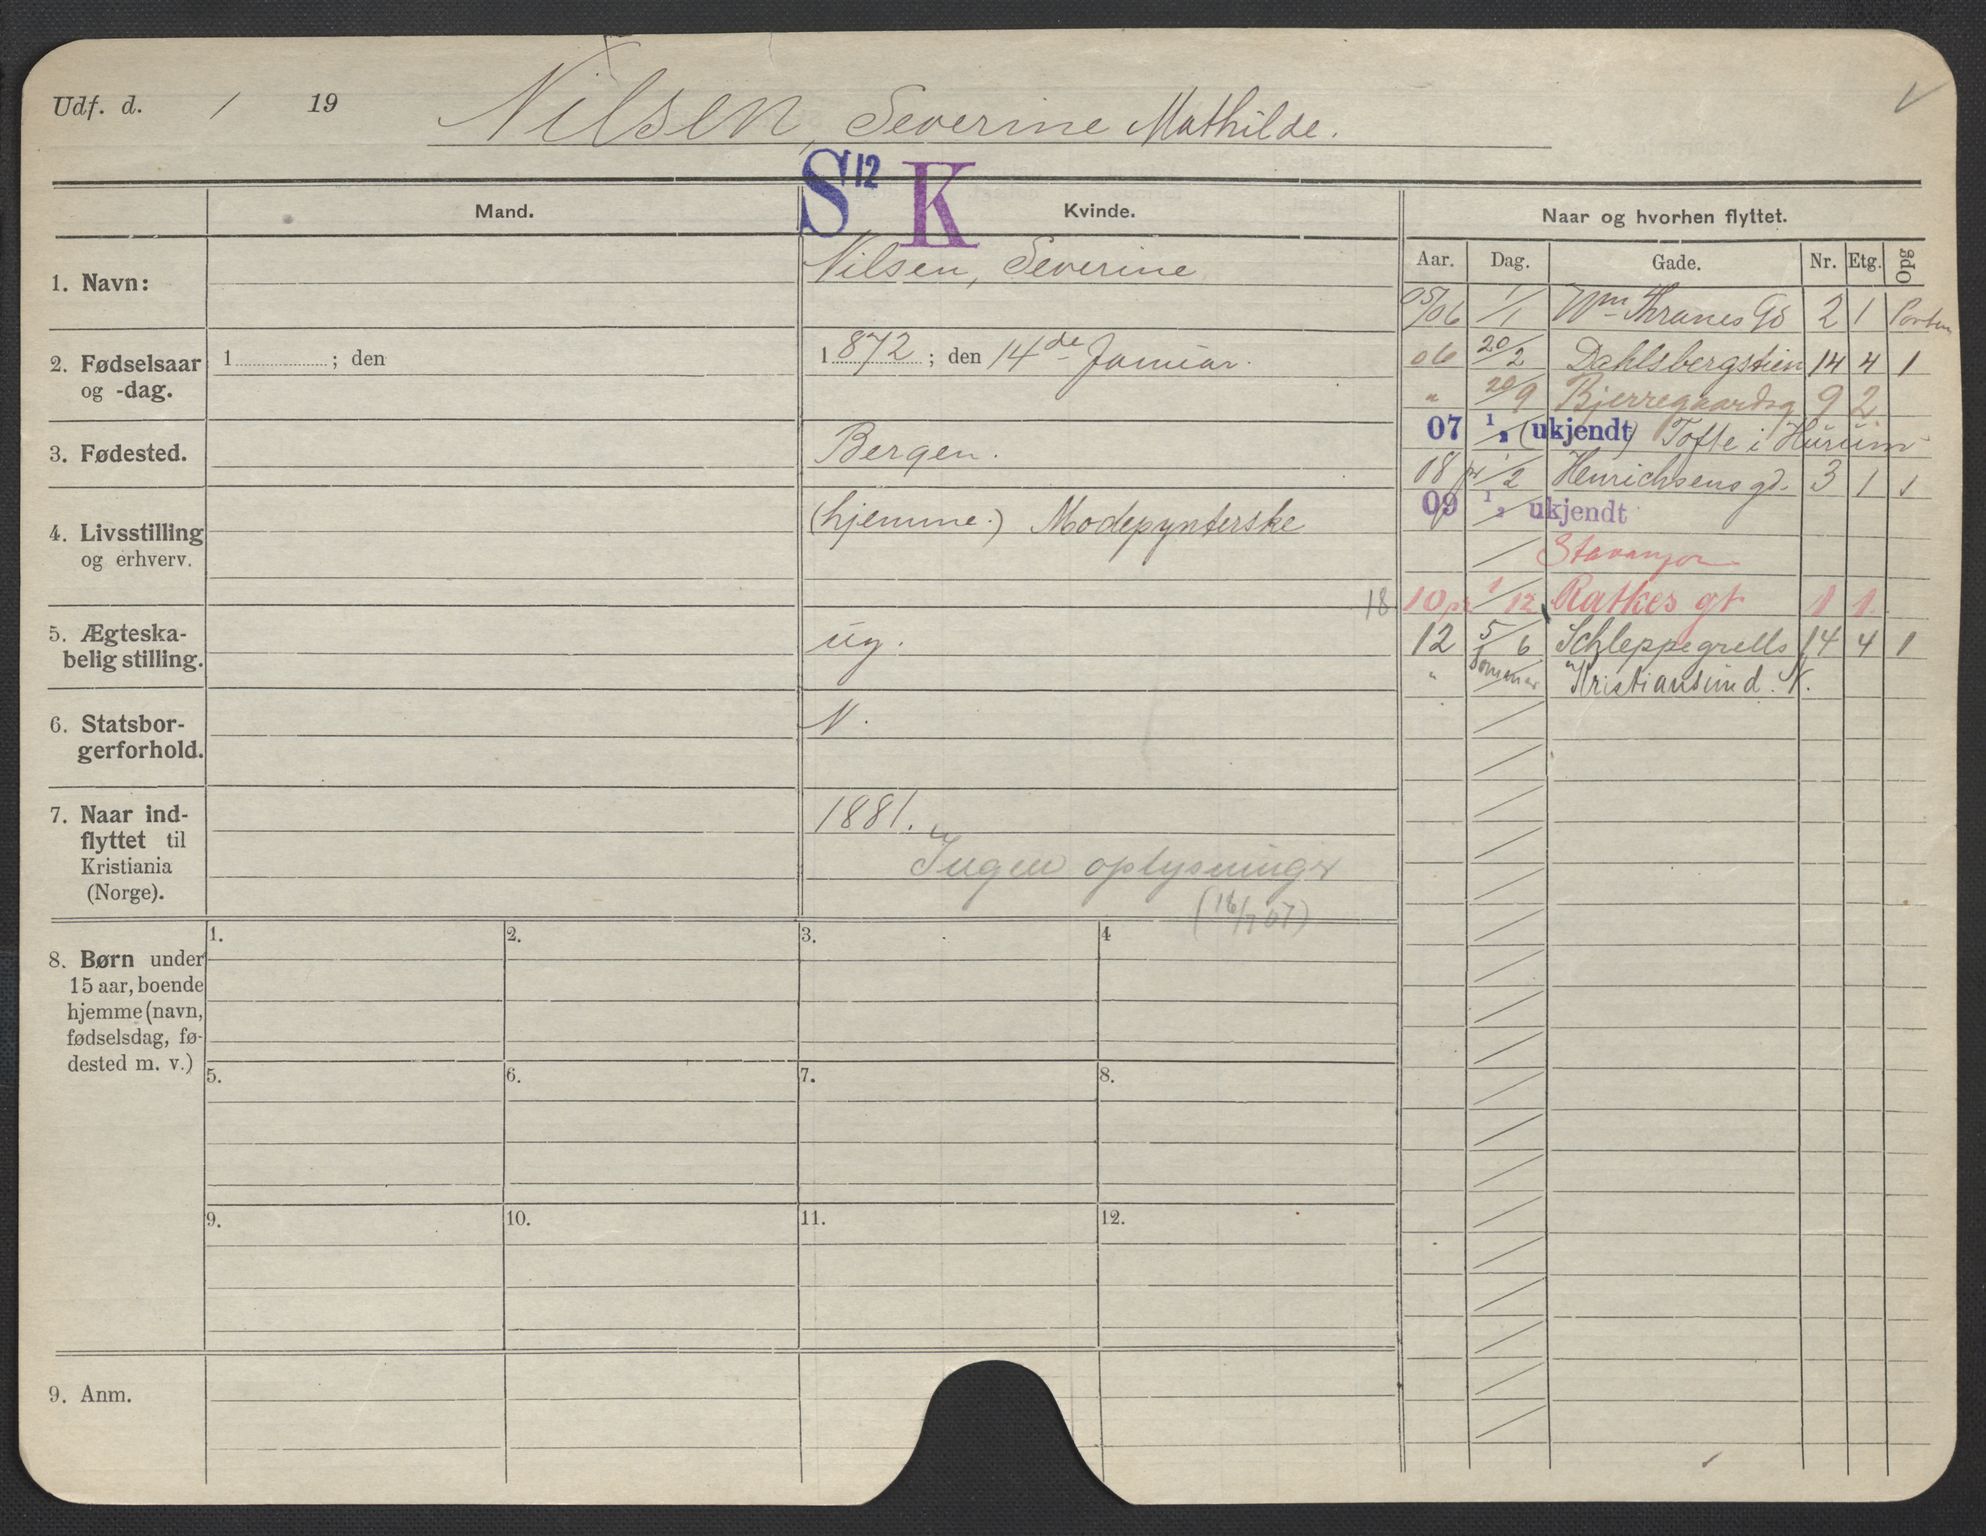 Udf. d. / 19 Nilsen, Severine Mathilde.
S 12 K
Mand. Kvinde. Naar og hvorhen flyttet.
Aar. Dag. Gade. Nr. Etg. Opg
1. Navn: Nilsen, Severine
2. Fødselsaar og -dag. 1 ; den
1872 ; den 14de Januar.
3. Fødested. Bergen.
4. Livsstilling og erhverv. (hjemme.) Modepynterske
5. Ægteskabelig stilling. ug.
6. Statsborgerforhold. N.
7. Naar indflyttet til Kristiania (Norge). 1881.
Ingen oplysninger
(16/7 07)
05/06 1/1 Wm Thranes Gd 2 1 Porten
06 20/2 Dahlsbergstien 14 4 1
" 20/9 Bjerregaardsg 9 2
07 1/2 (ukjendt) Tofte i Hurum
08 pr 1/2 Henrichsens gd. 3 1 1
09 1/2 ukjendt
Stavanger
18 10 pr 1/12 Ratkes gt 1 1
12 5/6 Schleppegrells 14 4 1
" Sommer Kristiansund. N.
8. Børn under 15 aar, boende hjemme (navn, fødselsdag, fødested m. v.)
1. 2. 3. 4
5. 6. 7. 8.
9. 10. 11. 12.
9. Anm.